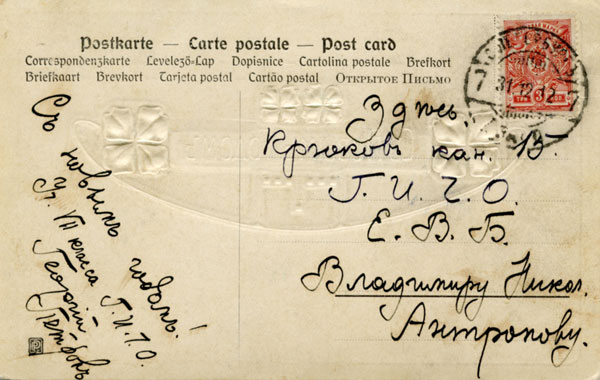 Postkarte — Carte postale — Post card
Correspondenzkarte Levelező-Lap Dopisnice Cartolina postale Brefkort
Briefkaart Brevkort Tarjeta postal Cartão postal Открытое Письмо
Здѣсь,
Крюковъ кан. 15.
Г. И. Г. О.
Е. В. Б.
Владимиру Никол.
Антропову.
Съ новымъ годомъ!
Уч. VII класса Г. И. Г. О.
Георгій
31 12 12
ТРИ 3 КОП